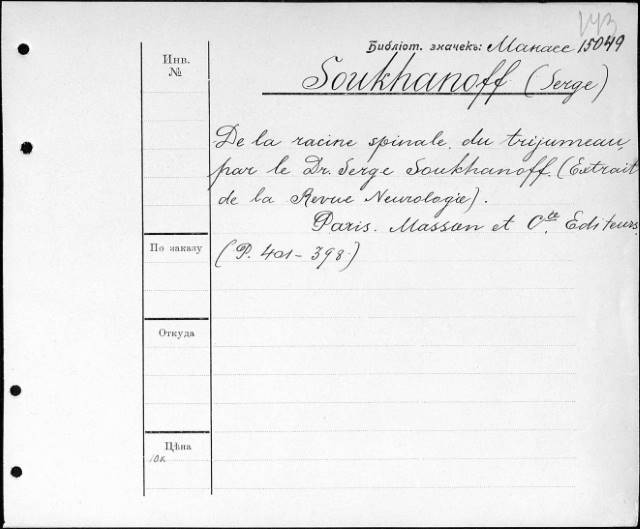 Библіот. значекъ: Манасе 15049
Инв.
№
Soukhanoff (Serge)
De la racine spinale du trijumeau,
par le Dr. Serge Soukhanoff. (Extrait
de la Revue Neurologie).
Paris. Masson et Cie. Editeurs.
По заказу
(P. 401-398.)
Откуда
Цѣна
10к